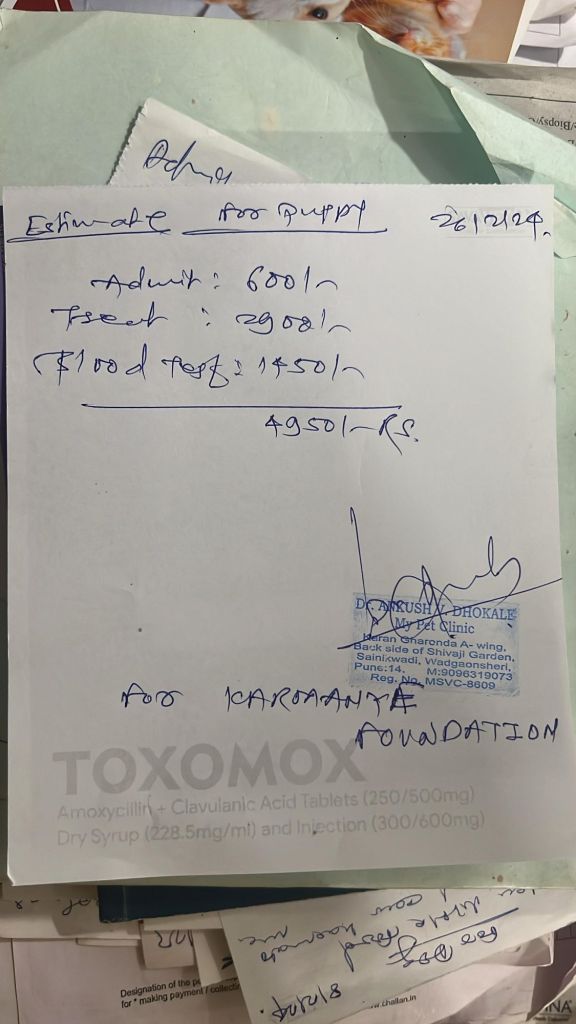 Admi
Estimate for Puppy 26/2/24.
Admit : 600/-
Treat : 2900/-
Blood Test : 1450/-
4950/- RS.
Dr. ANKUSH V. DHOKALE
My Pet Clinic
Haran Gharonda A- wing,
Back side of Shivaji Garden,
Sainikwadi, Wadgaonsheri,
Pune:14. M:9096319073
Reg. No. MSVC-8609
for KARMANYE
FOUNDATION
TOXOMOX
Amoxycillin + Clavulanic Acid Tablets (250/500mg)
Dry Syrup (228.5mg/ml) and Injection (300/600mg)
Designation of the pe
for * making payment / collectin
w.challan.in